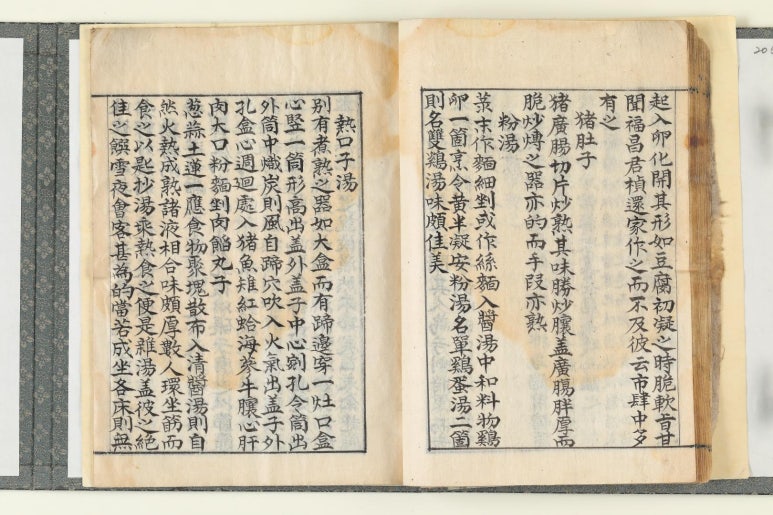 起入卵化開其形如豆腐初凝之時脆軟旨甘
聞福昌君楨還家作之而不及彼云市肆中多
有之
猪肚子
猪廣腸切片炒熟其味勝炒臁盖廣腸胖厚而
脆炒煿之器亦的而手段亦熟
粉湯
菉末作麵細剉或作絲麵入醬湯中和料物鷄
卵一箇烹令黄半凝安粉湯名單鷄蛋湯二箇
則名雙鷄湯味頗佳美
熱口子湯
别有煮熟之器如大盒而有蹄邊穿一灶口盒
心竪一筒形高出盖外盖子中心剜孔令筒出
外筒中熾炭則風自蹄穴吹入火氣出盖子外
孔盒心週廻處入猪魚雉紅蛤海蔘牛臁心肝
肉大口粉麵剉肉餡丸子
葱蒜土蓮一應食物聚塊散布入清醬湯則自
然火熱成熟諸液相合味頗厚數人環坐筯而
食之以匙抄湯乘熱食之便是雜湯盖彼之絶
佳之饌雪夜會客甚為的當若成坐各床則無